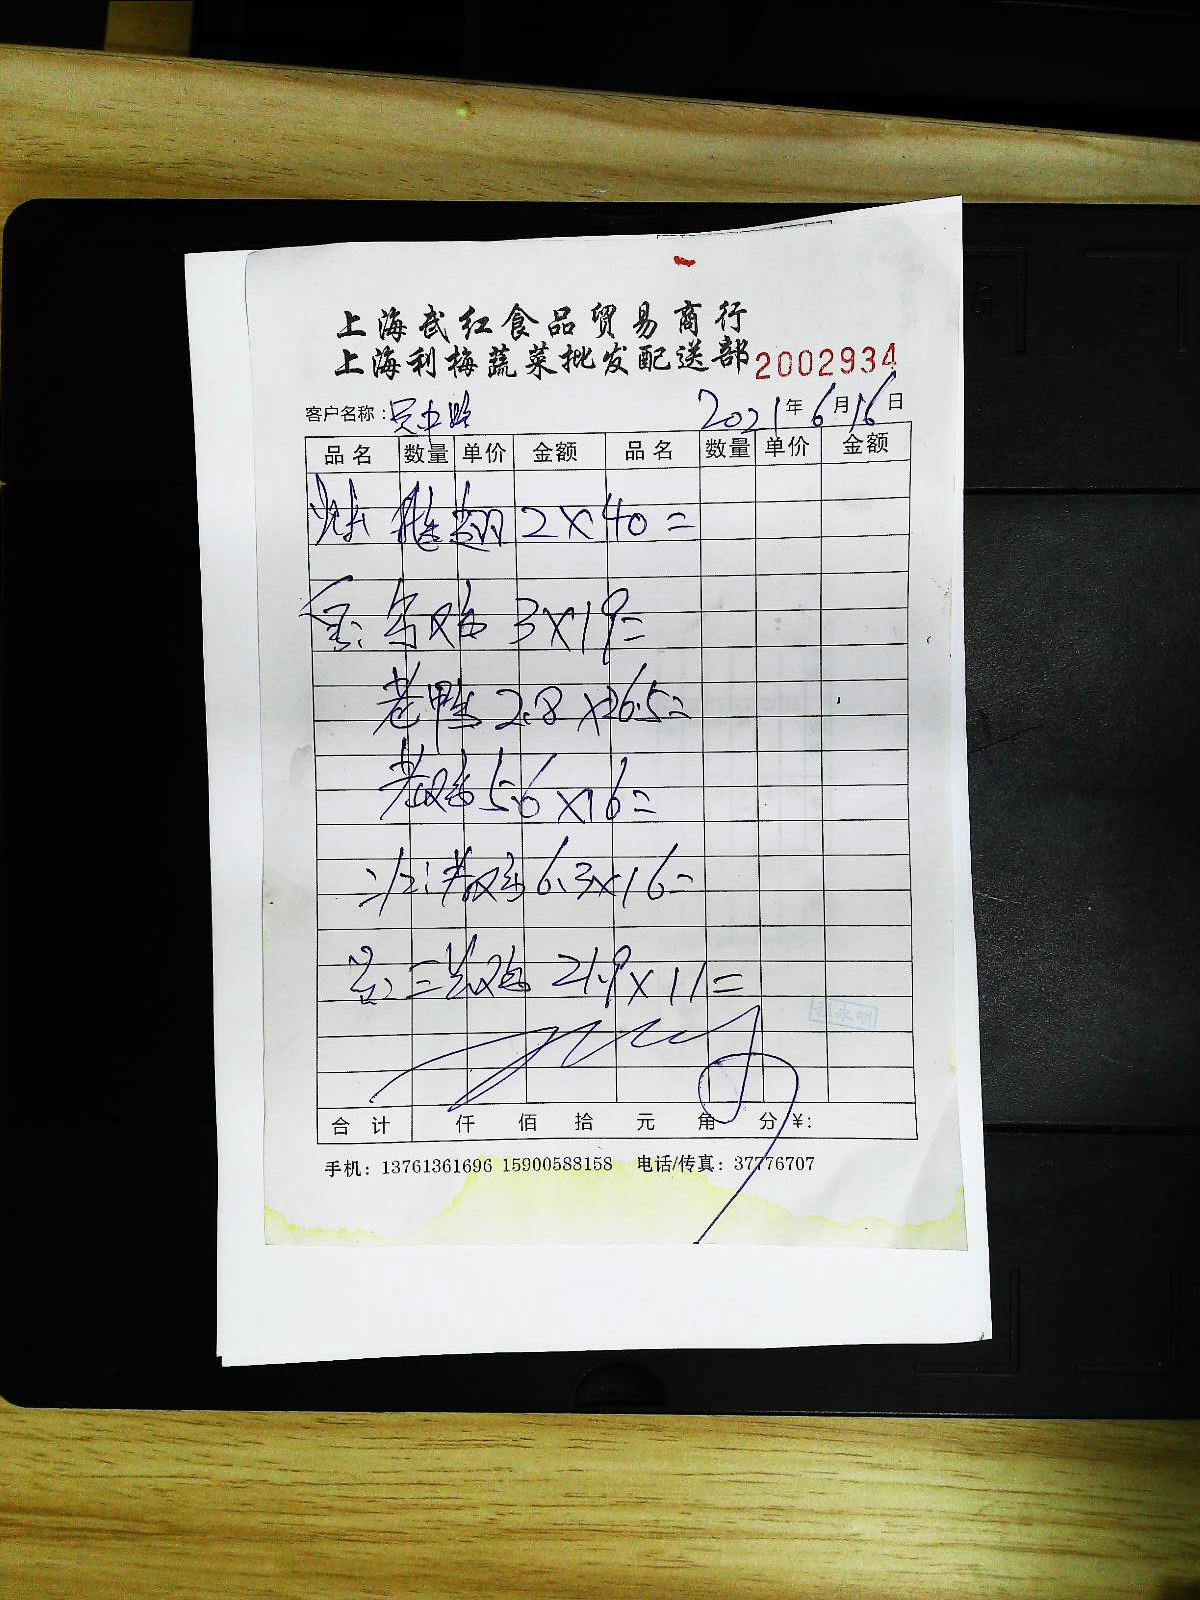 上海武红食品贸易商行
上海利梅蔬菜批发配送部 2002934
客户名称：吴中路 2021年6月16日
品名 数量 单价 金额 品名 数量 单价 金额
翅 2×40=
乌鸡 3×19=
老鸭 2.8×26.5=
老鸡 5.6×16=
老鸡 6.3×16=
三黄鸡 21.9×11=
合计 仟 佰 拾 元 角 分 ¥:
手机：13761361696 15900588158 电话/传真：37776707